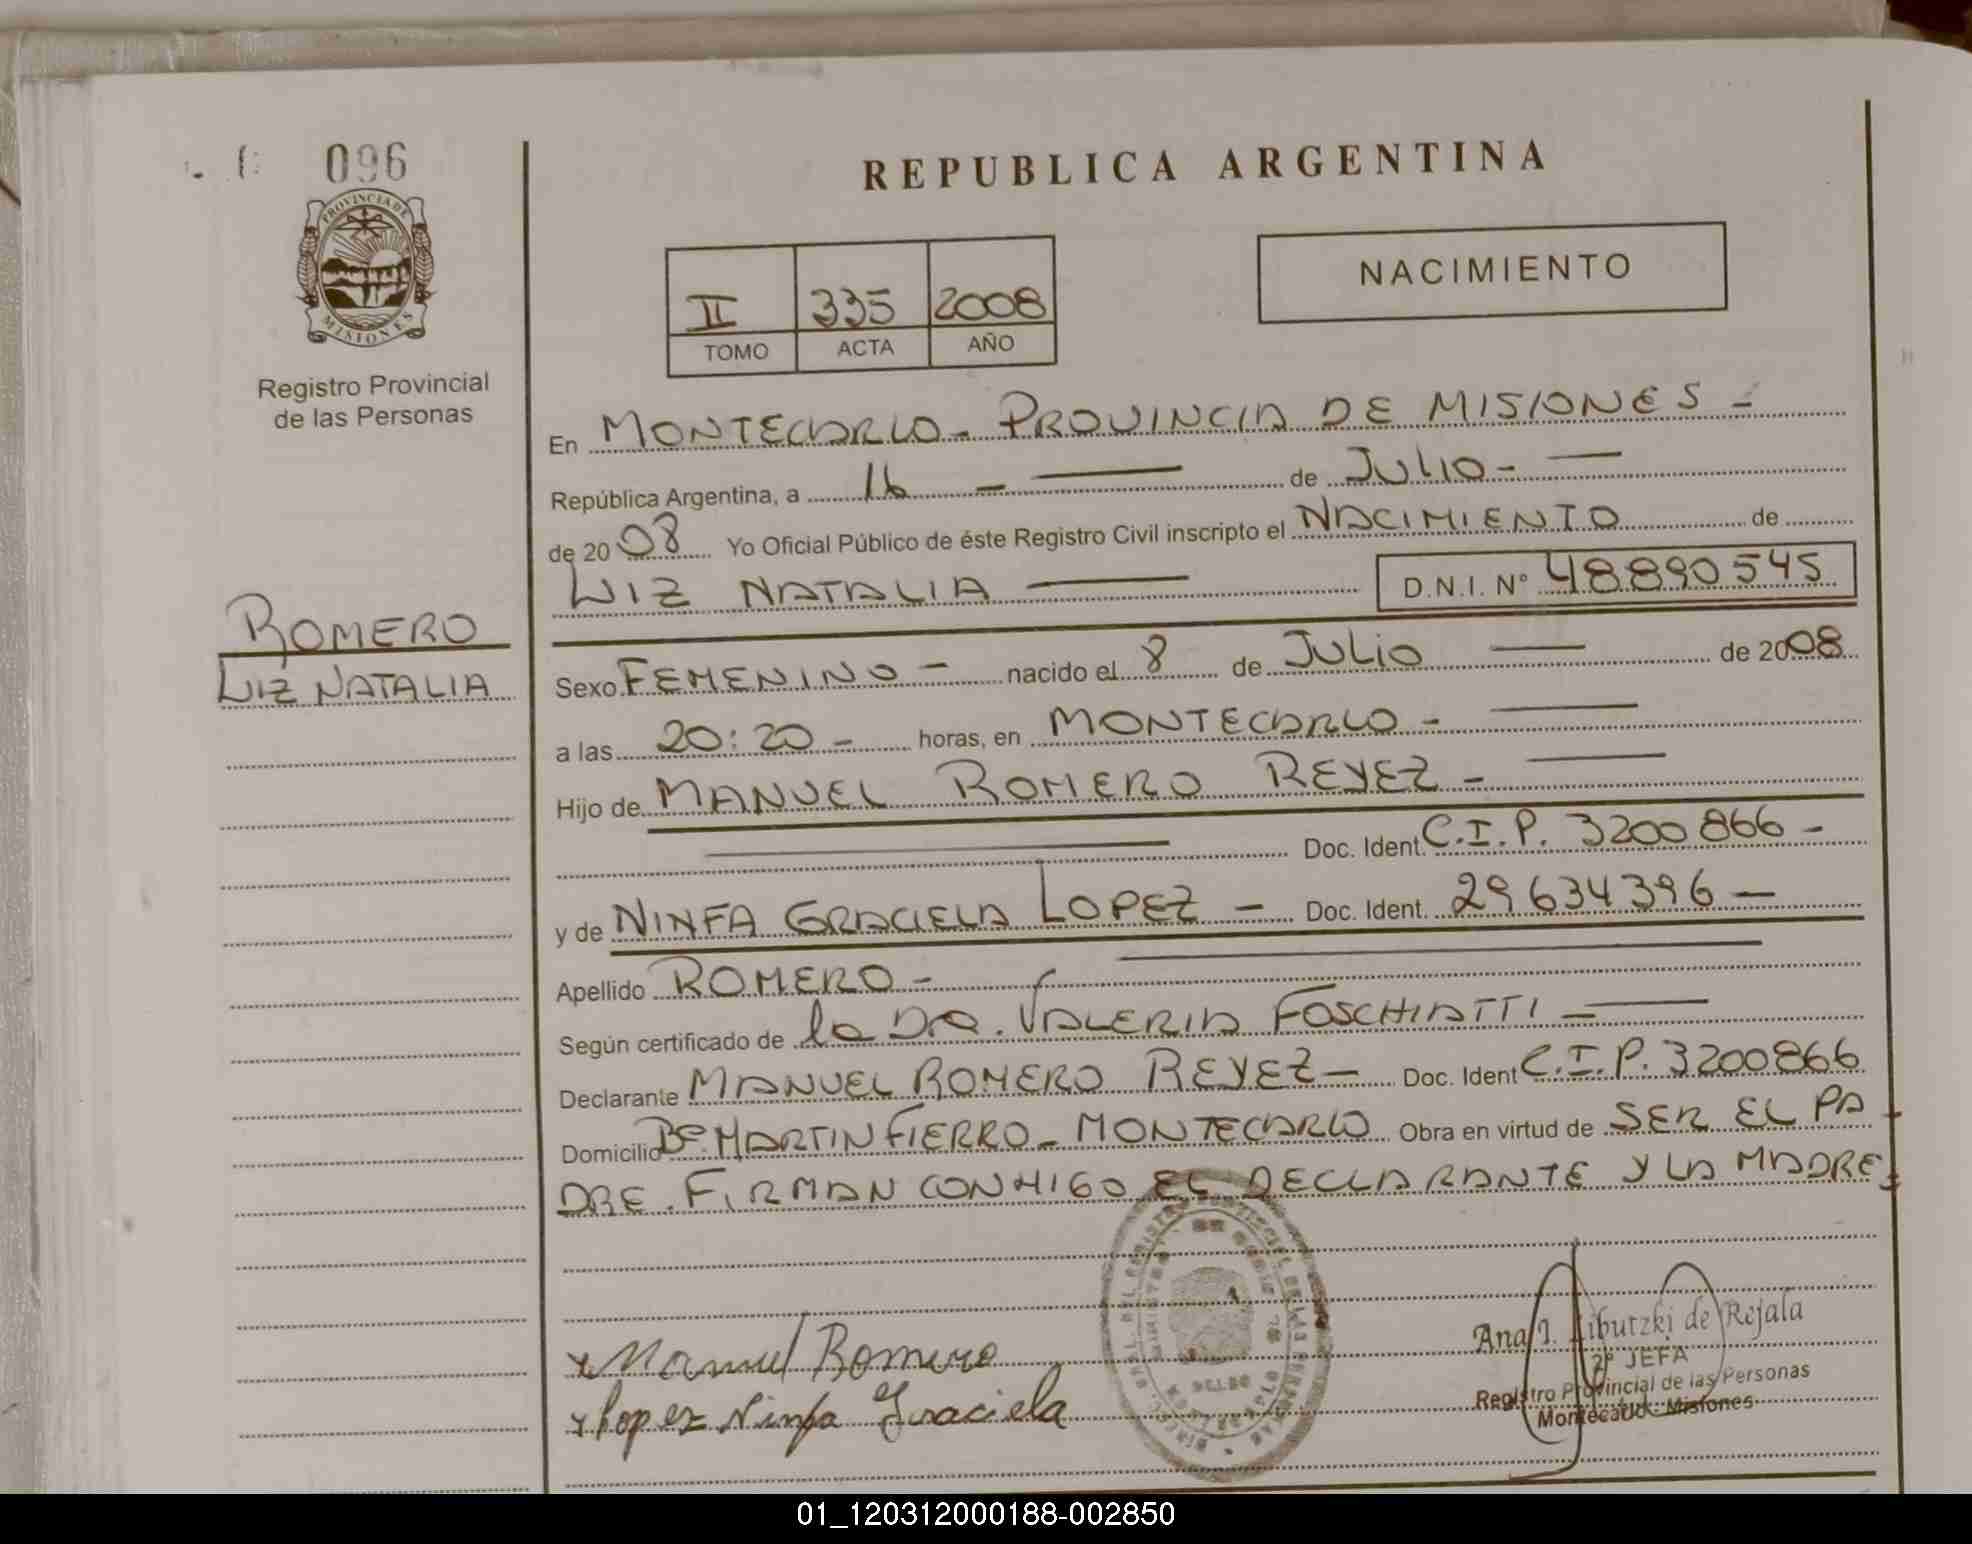 096
PROVINCIA DE
MISIONES
Registro Provincial
de las Personas
ROMERO
LIZ NATALIA
REPUBLICA ARGENTINA
II 335 2008
TOMO ACTA AÑO
NACIMIENTO
En MONTECARLO - PROVINCIA DE MISIONES -
República Argentina, a 16 - de JULIO -
de 2008 Yo Oficial Público de éste Registro Civil inscripto el NACIMIENTO de
LIZ NATALIA D.N.I. Nº 48890545
Sexo FEMENINO - nacido el 8 de JULIO de 2008
a las 20:20 - horas, en MONTECARLO -
Hijo de MANUEL ROMERO REYEZ -
Doc. Ident. C.I.P. 3200866 -
y de NINFA GRACIELA LOPEZ - Doc. Ident. 29634396 -
Apellido ROMERO -
Según certificado de la DRA. VALERIA FOSCHIATTI -
Declarante MANUEL ROMERO REYEZ - Doc. Ident C.I.P. 3200866
Domicilio Bº MARTIN FIERRO - MONTECARLO Obra en virtud de SER EL PA
DRE. FIRMAN CONMIGO EL DECLARANTE Y LA MADRE
x Manuel Romero
x Lopez Ninfa Graciela
Ana J. Libutzki de Rejala
2º JEFA
Registro Provincial de las Personas
Montecarlo - Misiones
01_120312000188-002850